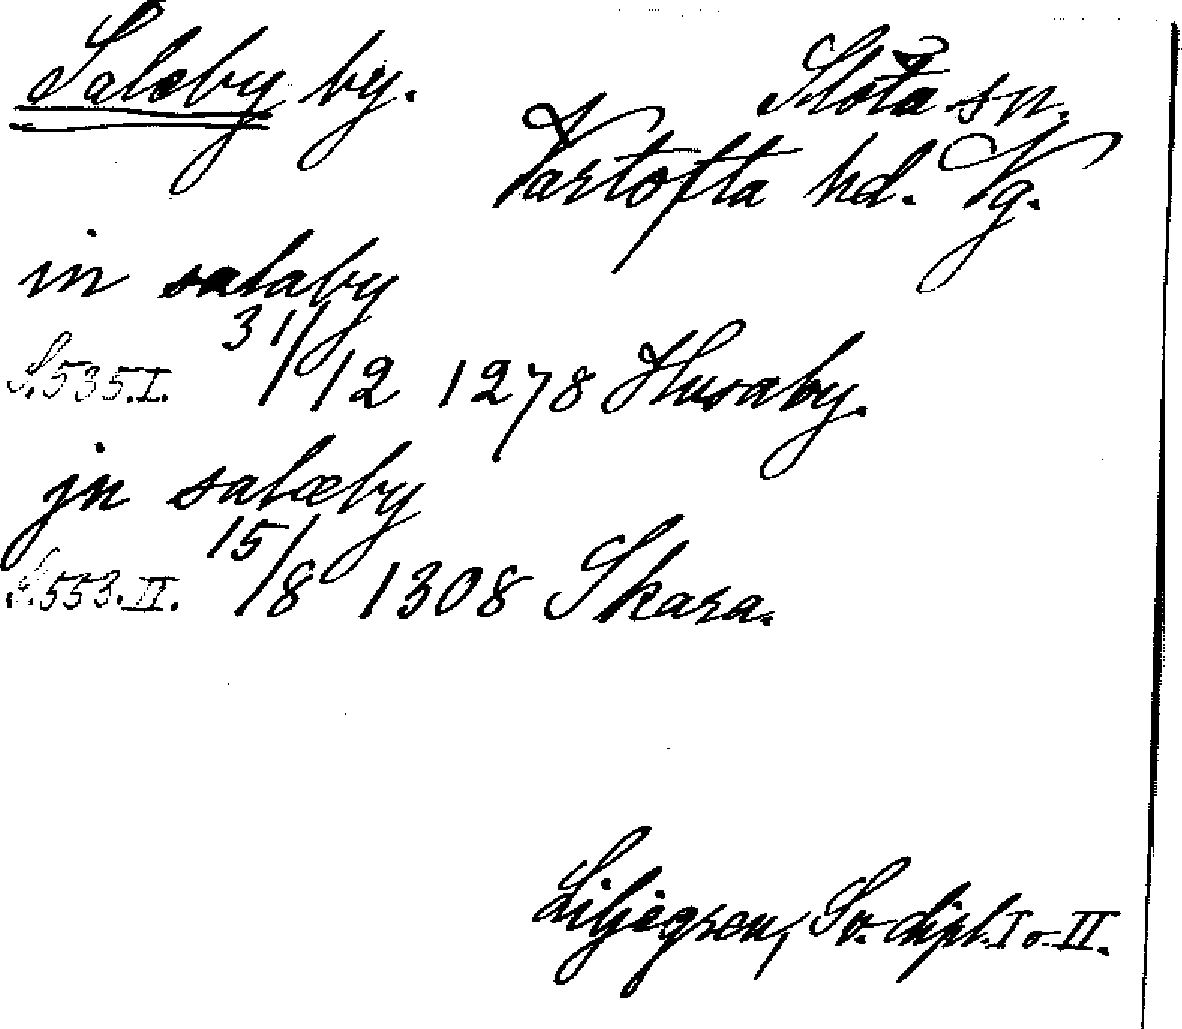 Saleby by. Slöta sn.
Vartofta hd. Vg.
in salaby
S. 535. I. 31/12 1278 Husaby.
jn salæby
S. 553. II. 15/8 1308 Skara.
Liljegren, Sv. dipl. I o. II.